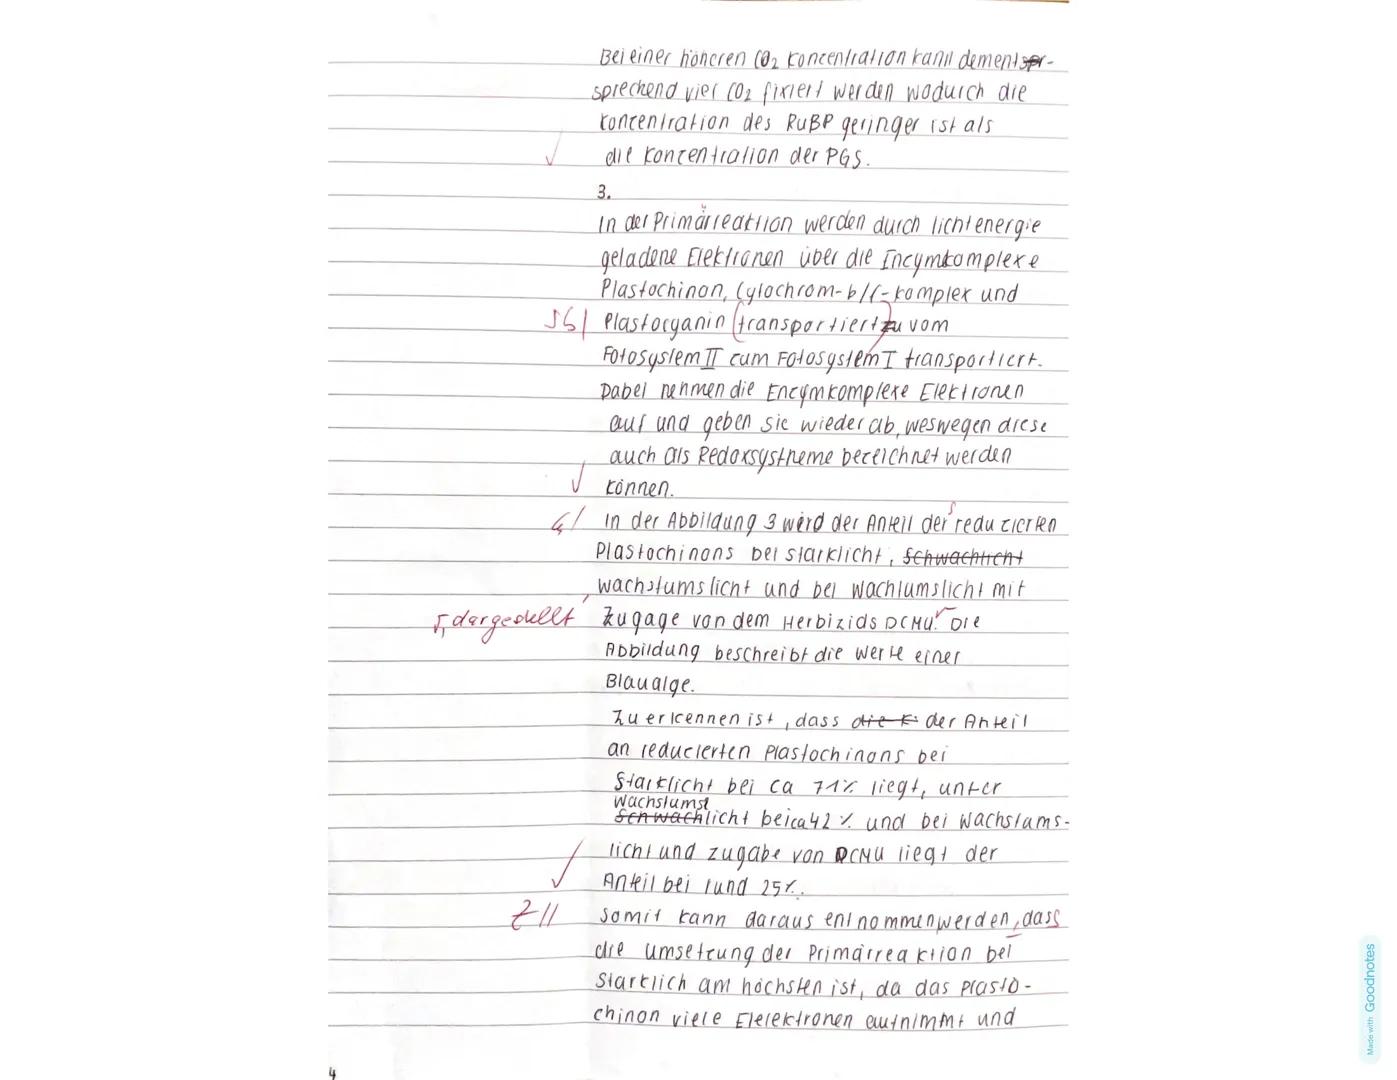 Bei einer höheren CO2 Koncentration kann dementspr-
sprechend vier CO2 fixiert werden wodurch die
Koncentration des RuBP geringer ist als
die Koncentration der PGS.
3.
In der Primärreaktion werden durch lichtenergie
geladene Elektronen über die Encymkomplexe
Plastochinon, Cytochrom-b/f-Komplex und
Sb| Plastocyanin (transportiert) zu vom
Fotosystem II cum Fotosystem I transportiert.
Dabei nehmen die Encymkomplexe Elektronen
auf und geben sie wieder ab, weswegen diese
auch als Redoxsystheme bezeichnet werden
können.
G/ In der Abbildung 3 wird der Anteil der reduzierten
s
Plastochinons bei starklicht, Schwachlicht
wachstumslicht und bei wachtumslicht mit
Γ, dargestellt Zugage von dem Herbizids DCMU. Die
Abbildung beschreibt die Werte einer
Blaualge.
Zu erkennen ist, dass die K der Anteil
an reducierten Plastochinons bei
Starklicht bei ca 71% liegt, unter
Wachstumsl
Schwachlicht bei ca 42 % und bei Wachstums-
licht und zugabe von DCMU liegt der
Anteil bei rund 25%.
Z|| Somit kann daraus entnommen werden, dass
die umsetzung der Primärreaktion bei
Starklich am höchsten ist, da das Plasto-
chinon viele Elelektronen aufnimmt und
4
Made with Goodnotes